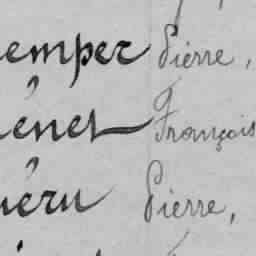 emper Pierre,
énet François
uéru Pierre,